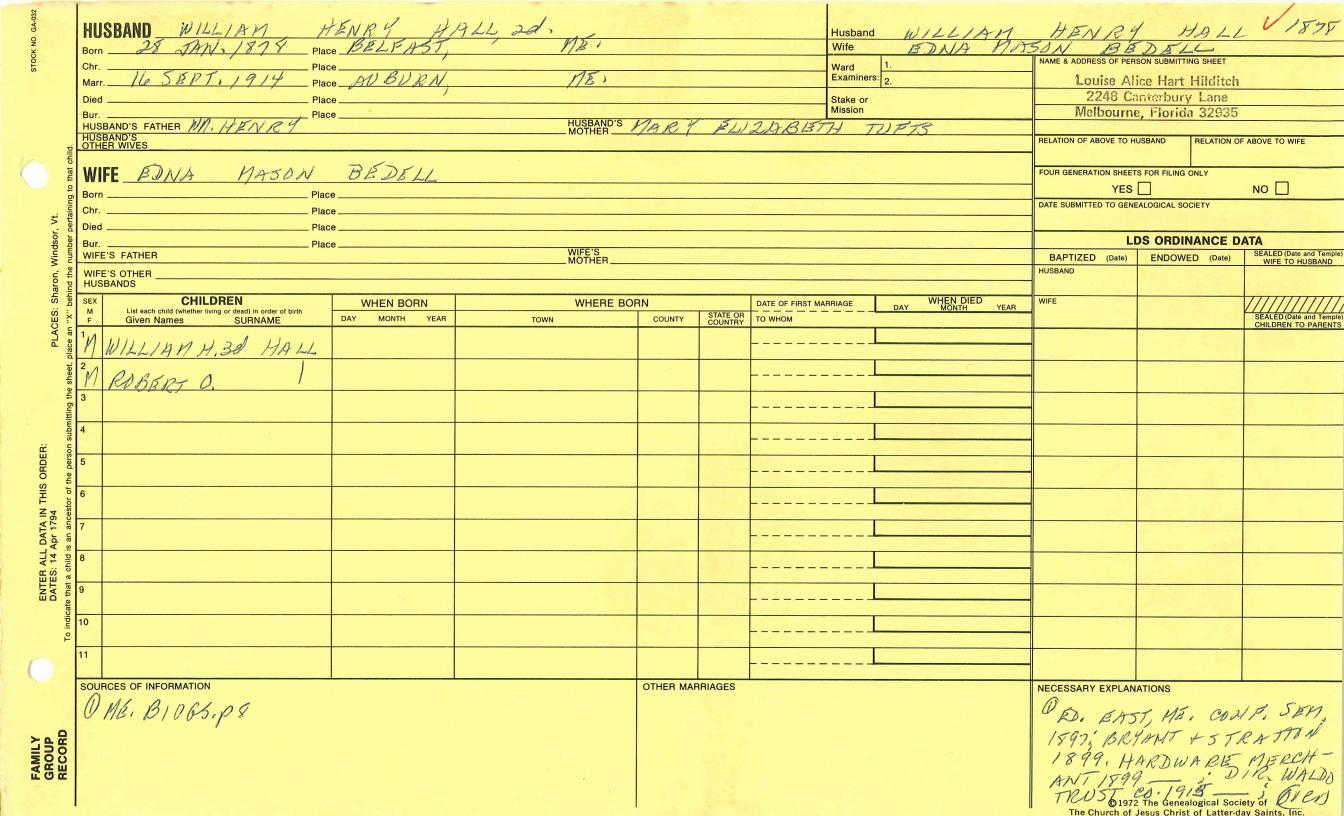 STOCK NO. GA-032
HUSBAND WILLIAM HENRY HALL, 2d.
Born 28 JAN. 1878 Place BELFAST, ME.
Chr. Place
Marr. 16 SEPT. 1914 Place AUBURN, ME.
Died Place
Bur. Place
HUSBAND'S FATHER WM. HENRY HUSBAND'S MOTHER MARY ELIZABETH TUFTS
HUSBAND'S OTHER WIVES
Husband WILLIAM HENRY HALL ✓ 1878
Wife EDNA MASON BEDELL
Ward Examiners: 1.
2.
Stake or Mission
NAME & ADDRESS OF PERSON SUBMITTING SHEET
Louise Alice Hart Hilditch
2248 Canterbury Lane
Melbourne, Florida 32935
RELATION OF ABOVE TO HUSBAND RELATION OF ABOVE TO WIFE
FOUR GENERATION SHEETS FOR FILING ONLY
YES NO
DATE SUBMITTED TO GENEALOGICAL SOCIETY
WIFE EDNA MASON BEDELL
Born Place
Chr. Place
Died Place
Bur. Place
WIFE'S FATHER WIFE'S MOTHER
WIFE'S OTHER HUSBANDS
LDS ORDINANCE DATA
BAPTIZED (Date) ENDOWED (Date) SEALED (Date and Temple) WIFE TO HUSBAND
HUSBAND
WIFE
SEALED (Date and Temple) CHILDREN TO PARENTS
SEX M F
CHILDREN
List each child (whether living or dead) in order of birth
Given Names SURNAME
WHEN BORN
DAY MONTH YEAR
WHERE BORN
TOWN COUNTY STATE OR COUNTRY
DATE OF FIRST MARRIAGE
TO WHOM
WHEN DIED
DAY MONTH YEAR
1 M WILLIAM H. 3d HALL
2 M ROBERT O. |
3
4
5
6
7
8
9
10
11
SOURCES OF INFORMATION
① ME. BIOGS. p8
OTHER MARRIAGES
NECESSARY EXPLANATIONS
① ED. EAST, ME. CONF. SEM.
1897; BRYANT + STRATTON
1899. HARDWARE MERCH-
ANT 1899 — ; DIR. WALDO
TRUST CO. 1915 — ; OVER
©1972 The Genealogical Society of
The Church of Jesus Christ of Latter-day Saints, Inc.
PLACES: Sharon, Windsor, Vt.
To indicate that a child is an ancestor of the person submitting the sheet, place an "X" behind the number pertaining to that child.
ENTER ALL DATA IN THIS ORDER:
DATES: 14 Apr 1794
FAMILY GROUP RECORD